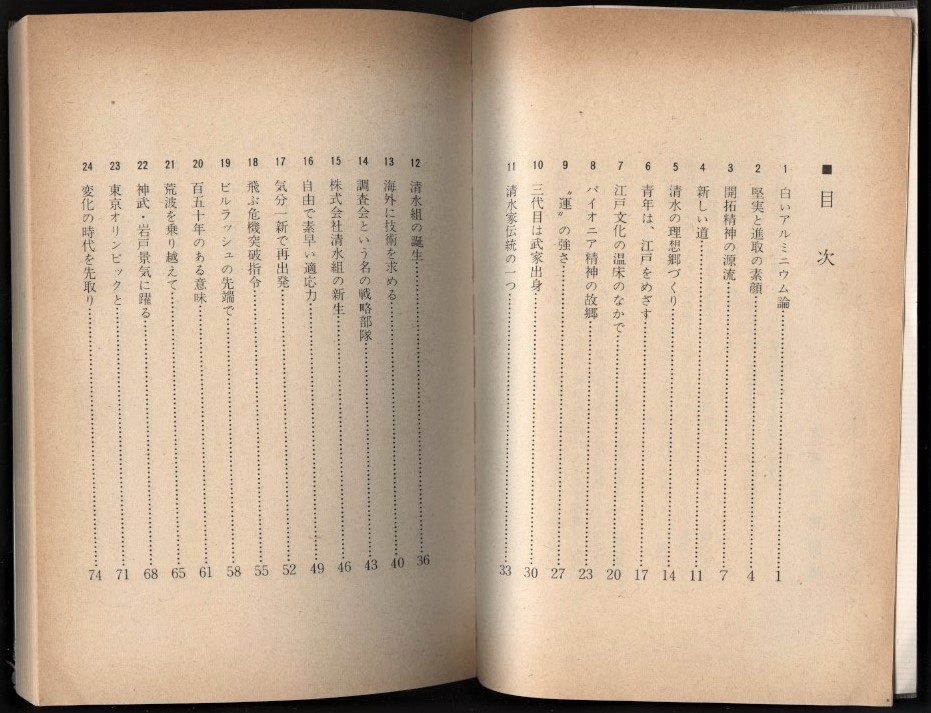 ■目次
1 白いアルミニウム論……1
2 堅実と進取の素顔……4
3 開拓精神の源流……7
4 新しい道……11
5 清水の理想郷づくり……14
6 青年は、江戸をめざす……17
7 江戸文化の温床のなかで……20
8 パイオニア精神の故郷……23
9 〝運〟の強さ……27
10 三代目は武家出身……30
11 清水家伝統の一つ……33
12 清水組の誕生……36
13 海外に技術を求める……40
14 調査会という名の戦略部隊……43
15 株式会社清水組の新生……46
16 自由で素早い適応力……49
17 気分一新で再出発……52
18 飛ぶ危機突破指令……55
19 ビルラッシュの先端で……58
20 百五十年のある意味……61
21 荒波を乗り越えて……65
22 神武・岩戸景気に躍る……68
23 東京オリンピックと……71
24 変化の時代を先取り……74